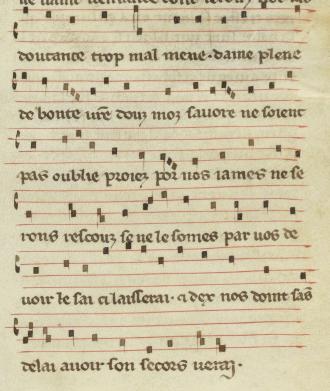 doutance trop mal mene · dame plene
de bonte vr̄e douz moz sauore ne soient
pas oublie proiez por nos iames ne se
rons rescouz se ne le somes par uos de
uoir le sai ci laisserai · ⁊ dex nos doint sās
delai auoir son secors uerai ·